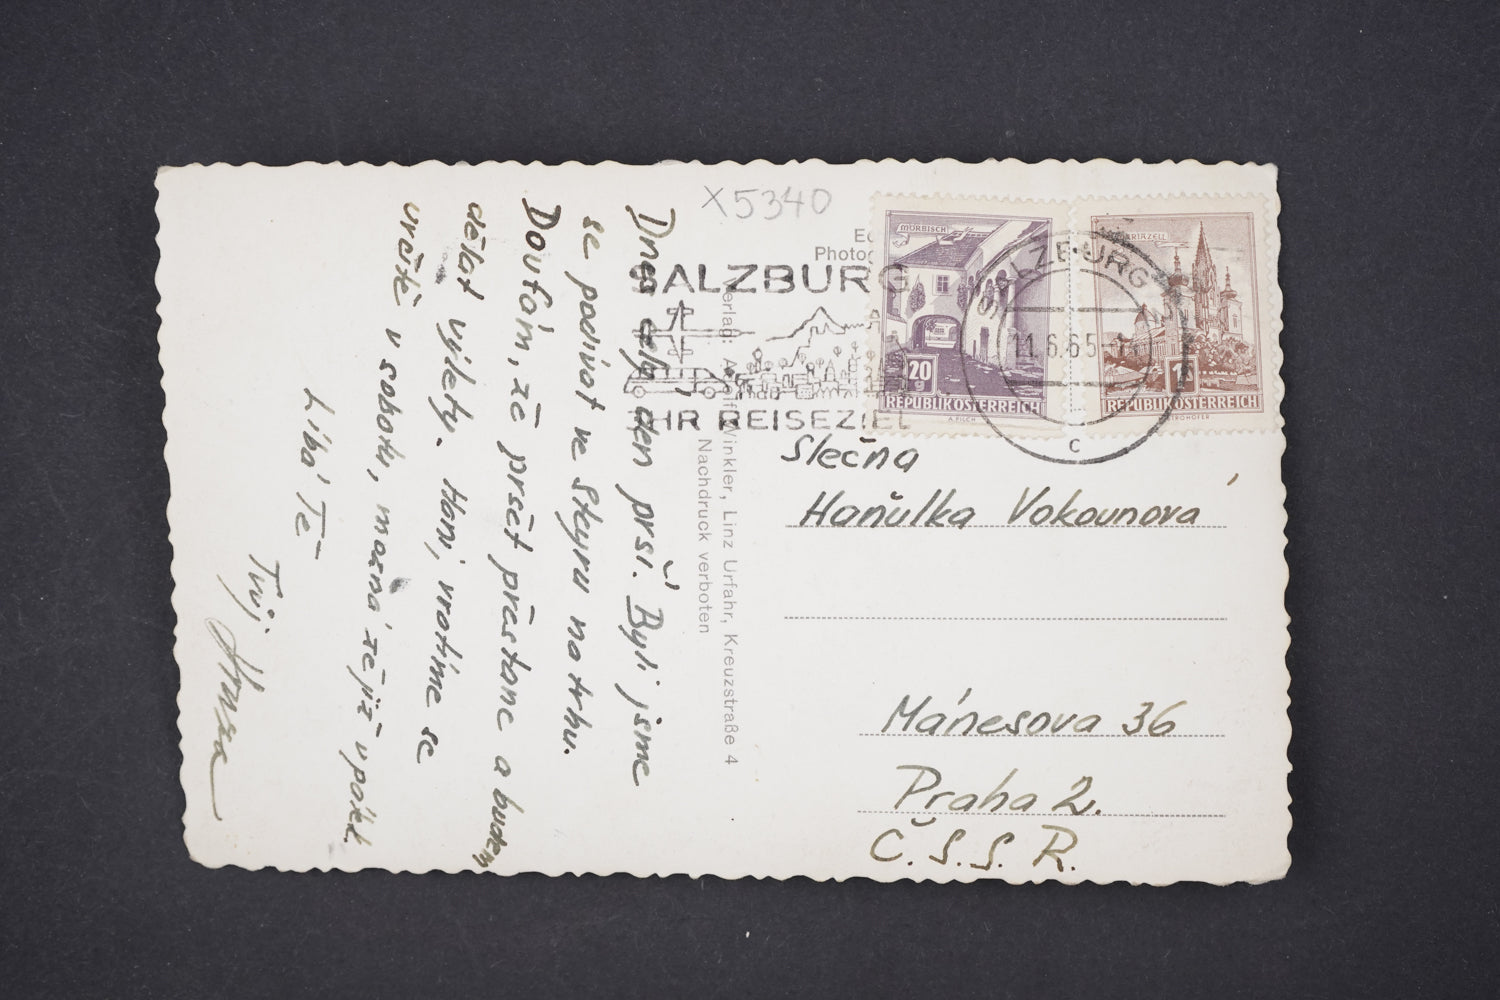 X5340
Dnes celý den prší. Byli jsme
se podívat ve Steyru na trhu.
Dovfám, že pršet přestane a budem
dělat výlety. Hani, vrátíme se
určitě v sobotu, možná že již v pátek.
Líbá Tě
Tvůj
Verlag: Adolf Winkler, Linz Urfahr, Kreuzstraße 4
Nachdruck verboten
Photo
SALZBURG
IHR REISEZIEL
MÖRBISCH
20
g
REPUBLIK ÖSTERREICH
A. PILCH
MARIAZELL
1
REPUBLIK ÖSTERREICH
SALZBURG
11.6.65
C
Slečna
Haňulka Vokounová
Mánesova 36
Praha 2.
Č.S.S.R.